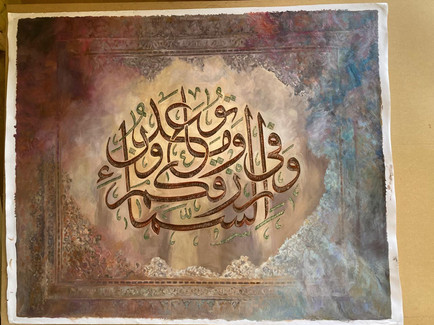 وفي السماء رزقكم وما توعدون